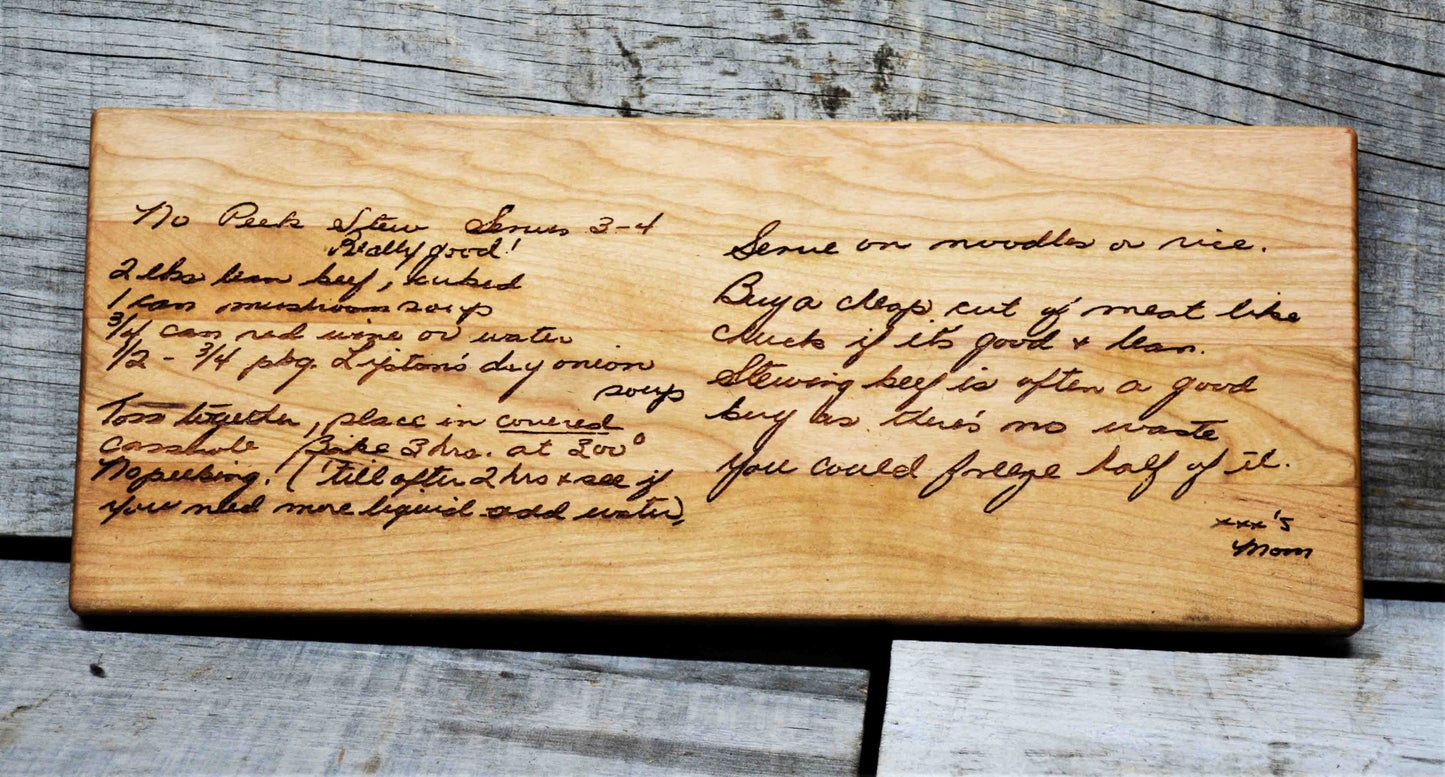 No Peek Stew Serves 3-4
Really good!
2 lbs lean beef, cubed
1 can mushroom soup
3/4 can red wine or water
1/2 - 3/4 pkg. Lipton's dry onion
soup
Toss together, place in covered
casserole Bake 3 hrs. at 300°
No peeking! ('till after 2 hrs & see if
you need more liquid add water)
Serve on noodles or rice.
Buy a cheap cut of meat like
chuck if it's good & lean.
Stewing beef is often a good
buy as there's no waste
You could freeze half of it.
xxx's
Mom